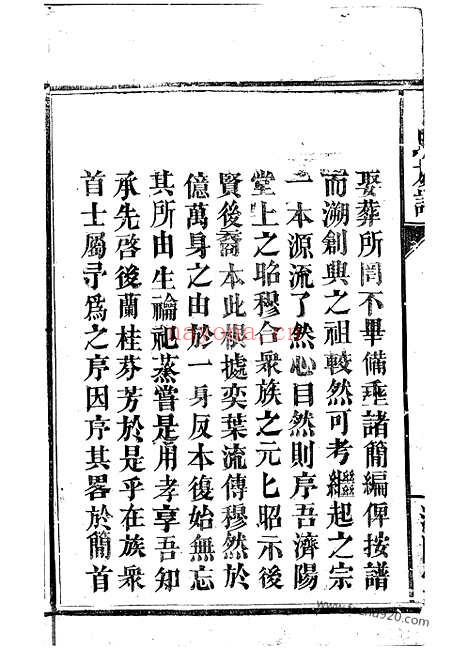 娶葬所罔不畢備垂諸簡編俾按譜
而溯創典之祖較然可考繼起之宗
一本源流了然心目然則序吾濟陽
堂上之昭穆合衆族之元匕昭示後
賢後裔本此模據奕葉流傳穆然於
億萬身之由於一身反本復始無忘
其所由生禴祀蒸嘗是用孝享吾知
承先啓後蘭桂芬芳於是乎在族衆
首士屬予爲之序因序其畧於簡首